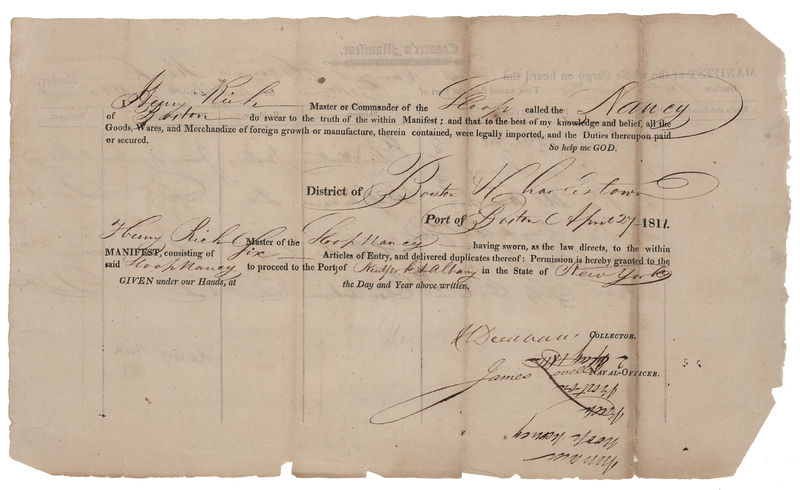 Coaster's Manifest.
MANIFEST of the whole Cargo on board the
Master,
Henry Rich Master or Commander of the Sloop called the Nancy
of Boston do swear to the truth of the within Manifest; and that to the best of my knowledge and belief, all the
Goods, Wares, and Merchandize of foreign growth or manufacture, therein contained, were legally imported, and the Duties thereupon paid
or secured. So help me GOD.
District of Boston & Charlestown
Port of Boston April 27 1811.
Henry Rich Master of the Sloop Nancy having sworn, as the law directs, to the within
MANIFEST, consisting of Six Articles of Entry, and delivered duplicates thereof: Permission is hereby granted to the
said Sloop Nancy to proceed to the Port of & Albany in the State of New York
GIVEN under our Hands, at the Day and Year above written.
H Dearborn COLLECTOR.
James Lovell NAVAL-OFFICER.
Sloop Nancy